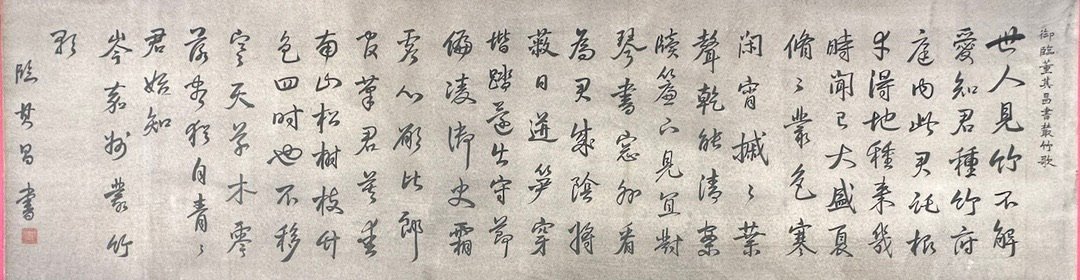 御臨董其昌書叢竹歌
世人見竹不解
愛知君種竹府
庭內此君託根
幸得地種來幾
時聞已大盛夏
翛〻叢色寒
閑宵摵〻葉
聲乾能清案
牘簾下見宜對
琴書窗外看
為君成陰將
蔽日迸筍穿
堦踏還出守節
偏凌御史霜
虛心願比郎
官筆君莫愛
南山松樹枝竹
色四時也不移
寒天草木零
落盡猶自青〻
君始知
岑嘉州叢竹
歌
臨其昌書